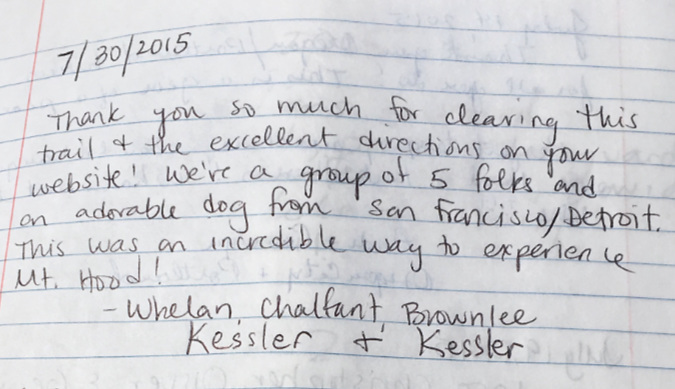 7/30/2015
Thank you so much for clearing this
trail + the excellent directions on your
website! We're a group of 5 folks and
an adorable dog from San Francisco/Detroit.
This was an incredible way to experience
Mt. Hood!
- Whelan, Chalfant, Brownlee
Kessler + Kessler